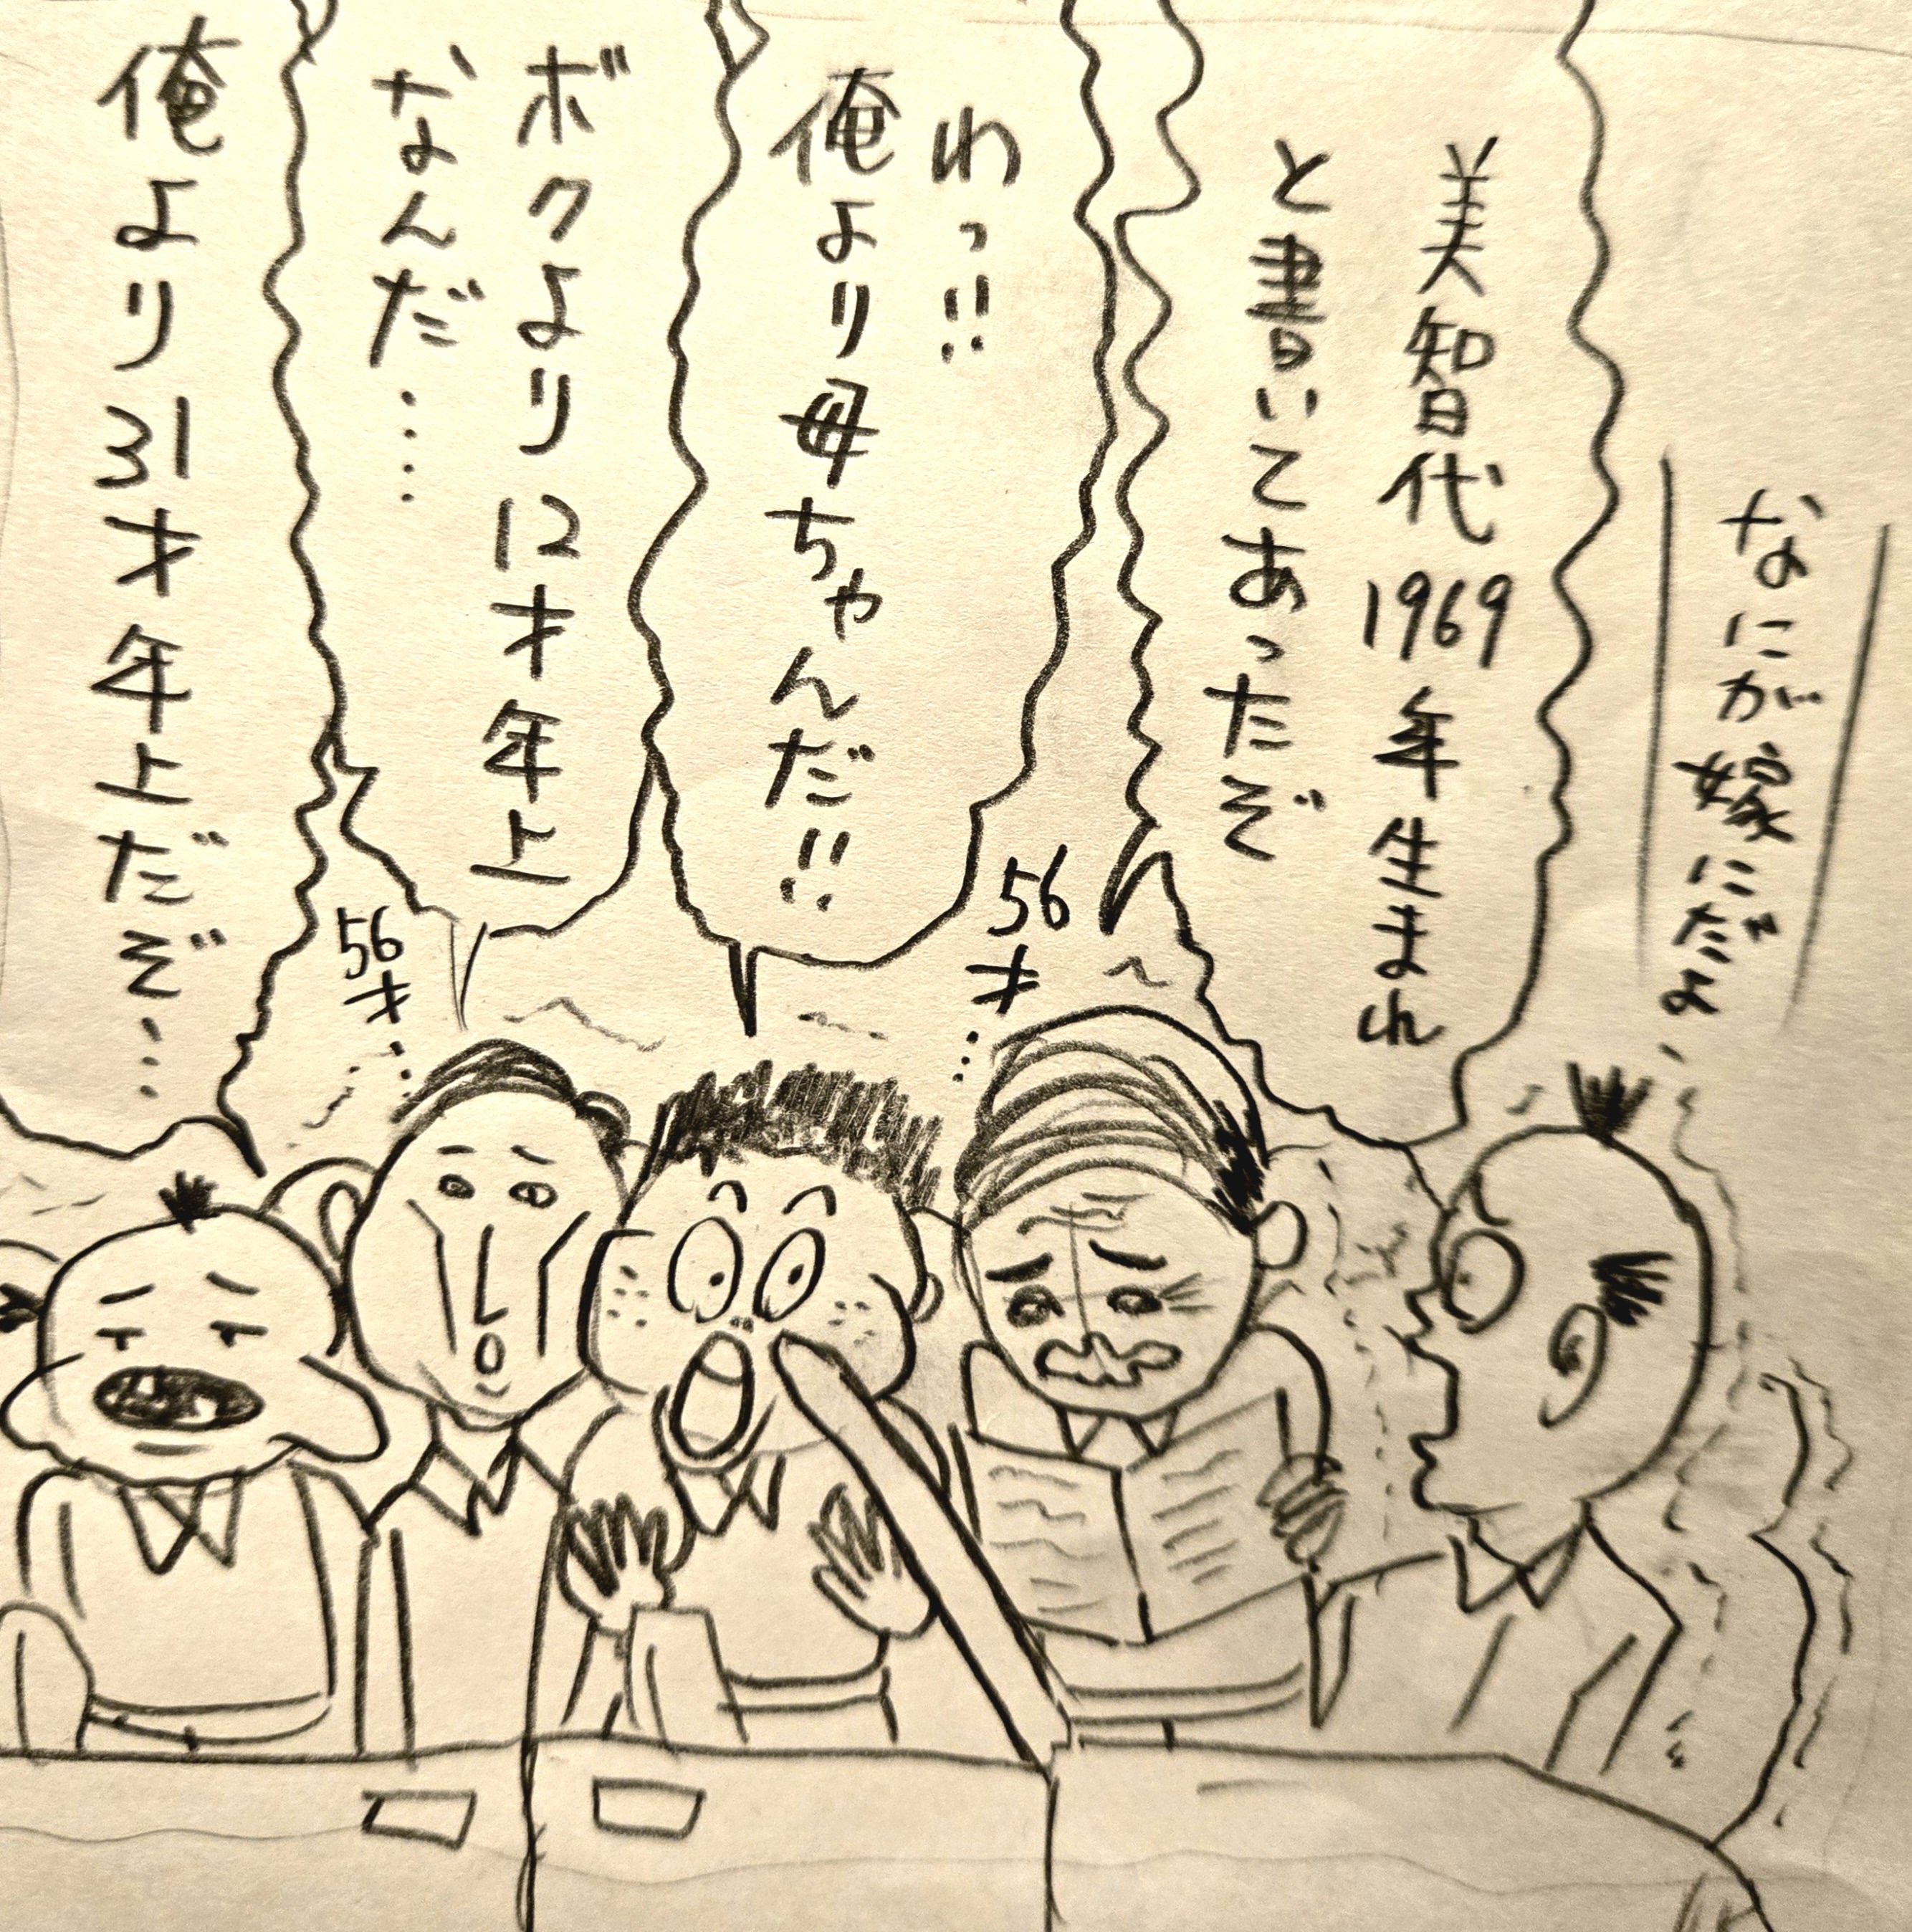 なにが嫁にだよ
美智代1969年生まれ
と書いてあったぞ
56才…
わっ!!
俺より母ちゃんだ!!
ボクより12才年上
なんだ……
56才…
俺より31才年上だぞ…